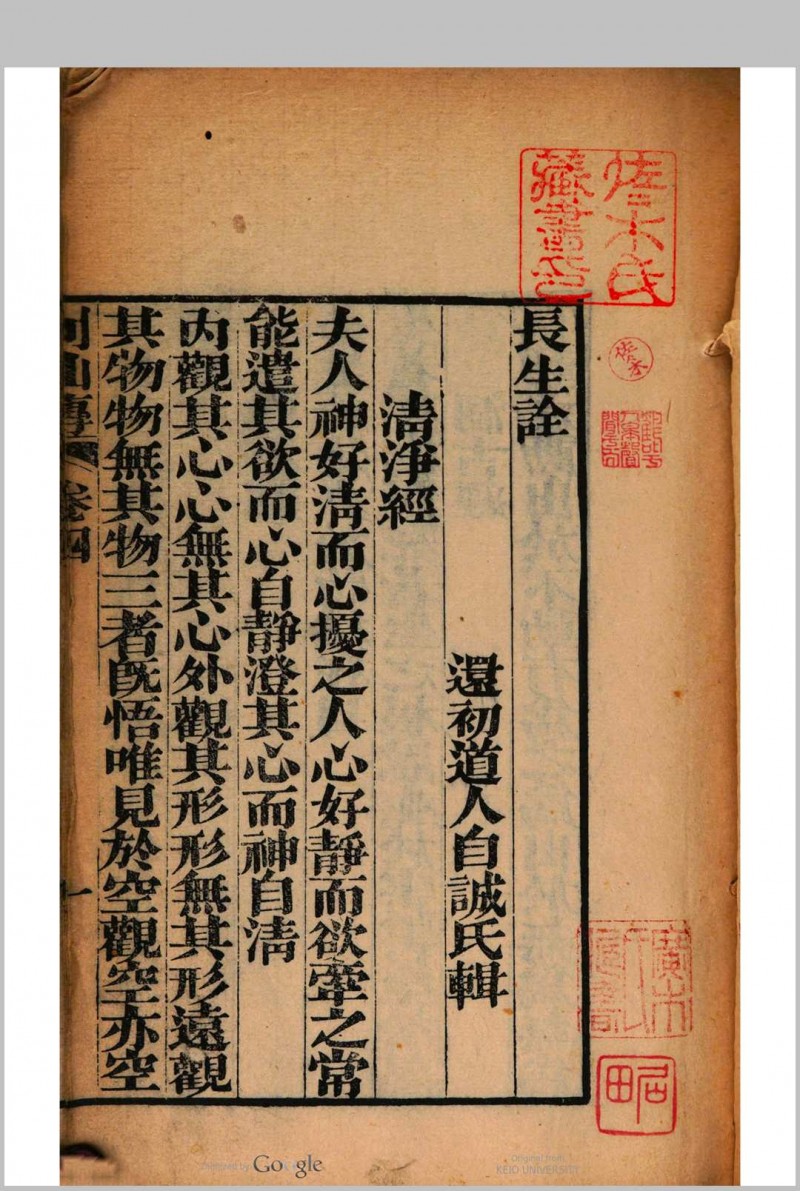 長生詮
還初道人自誠氏輯
清淨經
夫人神好清而心擾之人心好靜而欲牽之常
能遣其欲而心自靜澄其心而神自清
內觀其心心無其心外觀其形形無其形遠觀
其物物無其物三者旣悟唯見於空觀空亦空
列仙傳 卷四 一
藏書
Google
Original from
KEIO UNIVERSITY